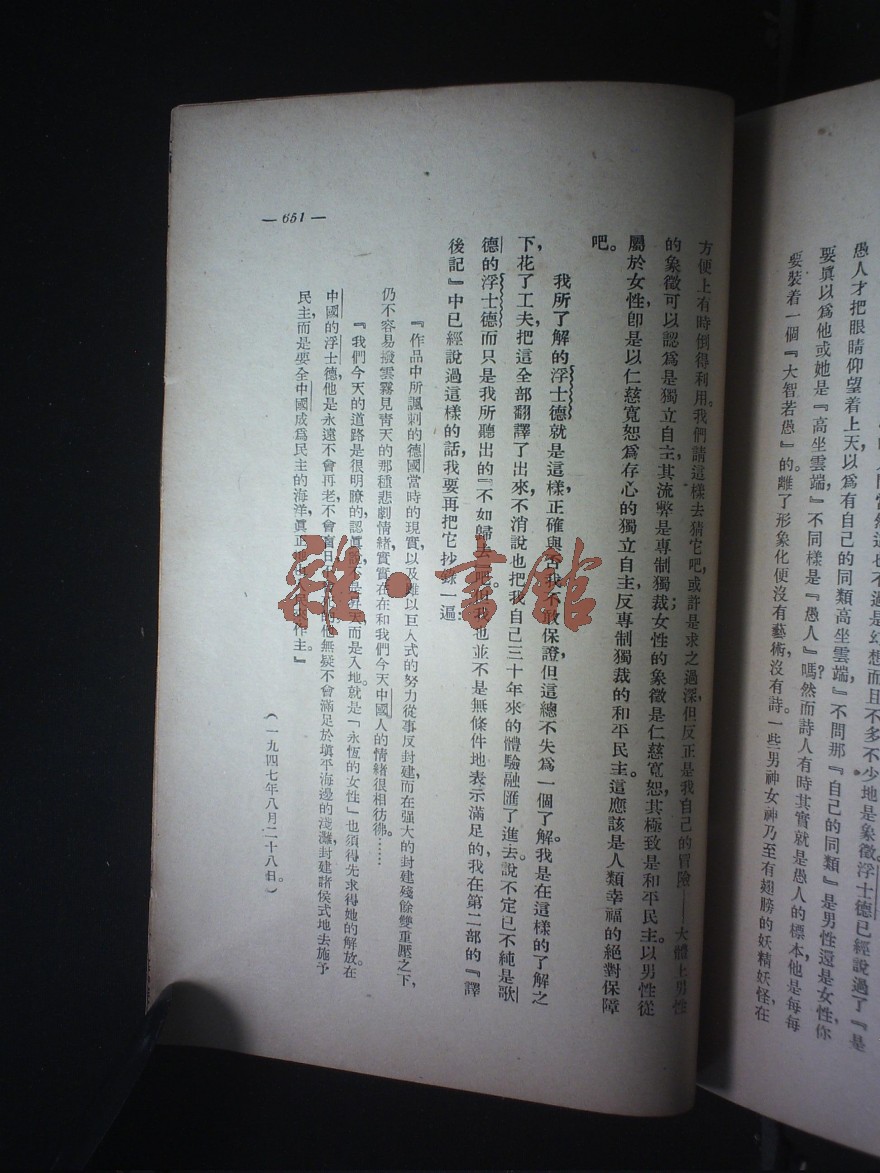 愚人才把眼睛仰望着上天以爲有自己的同類高坐雲端』不問那『自己的同類』是男性還是女性,你
要眞以爲他或她是『高坐雲端』不同樣是『愚人』嗎?然而詩人有時其實就是愚人的標本,他是每每
要裝着一個『大智若愚』的。離了形象化便沒有藝術,沒有詩。一些男神女神乃至有翅膀的妖精妖怪,在
方便上有時倒得利用。我們請這樣去猜它吧,或許是求之過深,但反正是我自己的冒險——大體上男性
的象徵可以認爲是獨立自主,其流弊是專制獨裁;女性的象徵是仁慈寬恕,其極致是和平民主。以男性從
屬於女性,卽是以仁慈寬恕爲存心的獨立自主,反專制獨裁的和平民主。這應該是人類幸福的絕對保障
吧。
我所了解的浮士德就是這樣,正確與否我不敢保證,但這總不失爲一個了解。我是在這樣的了解之
下,花了工夫把這全部翻譯了出來,不消說也把我自己三十年來的體驗融匯了進去。說不定已不純是歌
德的浮士德,而只是我所聽出的『不如歸去』吧。但我也並不是無條件地表示滿足的,我在第二部的『譯
後記』中已經說過這樣的話,我要再把它抄錄一遍:
『作品中所諷刺的德國當時的現實,以及雖以巨人式的努力從事反封建,而在强大的封建殘餘雙重壓之下,
仍不容易撥雲霧見靑天的那種悲劇情緒,實實在在和我們今天中國人的情緒很相彷彿。……
『我們今天的道路是很明瞭的,認眞說不是昇天而是入地。就是「永恆的女性」也須得先求得她的解放。在
中國的浮士德,他是永遠不會再老,不會盲目,不會 的。他無疑不會滿足於塡平海邊的淺灘,封建諸侯式地去施予
民主,而是要全中國成爲民主的海洋,眞正地由人民來作主。』
(一九四七年八月二十八日。)
— 651 —
雜·書館